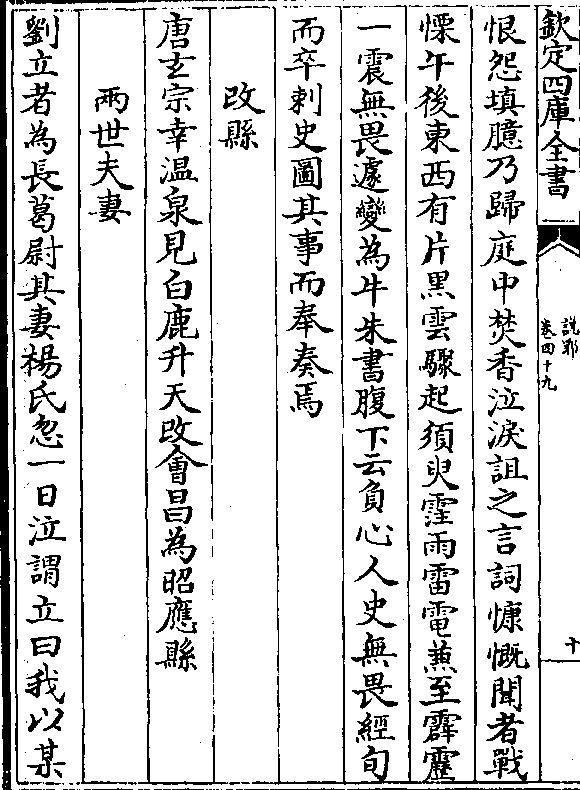 欽定四庫全書
說郛
卷四十九
十
恨怨填臆乃歸庭中焚香泣淚詛之言詞慷慨聞者戰
慄午後東西有片黑雲驟起須臾霔雨雷電兼至霹靂
一震無畏遽變為牛朱書腹下云負心人史無畏經旬
而卒刺史圖其事而奉奏焉
改縣
唐玄宗幸温泉見白鹿升天改會昌為昭應縣
兩世夫妻
劉立者為長葛尉其妻楊氏忽一日泣謂立曰我以某